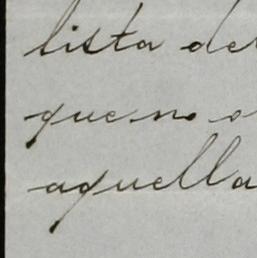 lista de
que no
aquella